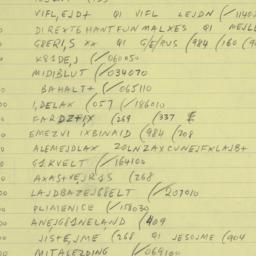 VIFL,EJD+ QI VIFL LEJDN (/1140
DIREXTEHANTFUNMALXES QI
G8ERI,S XX QI G/E/RUS (984 (160
K81DE,J (/060050
MIDIBLUT (/034070
BAHALT+ (/065110
I,DELAX (057 (/186010
FARDZ+PX (269 (337
EMEZVI IXBINAID (984 (208
ALEMEJDLAX 20LNZAXCUNEJFXLAJB+
G1RVELT (/164100
AXAST+EJR1S (268
LAJDBAZEJG8ELT (/207010
PLIMENICE (/158030
ANEJG81NELAND (409
JIST+E,JME (268 QI JESOJME (904
MITALEZDING (/069100